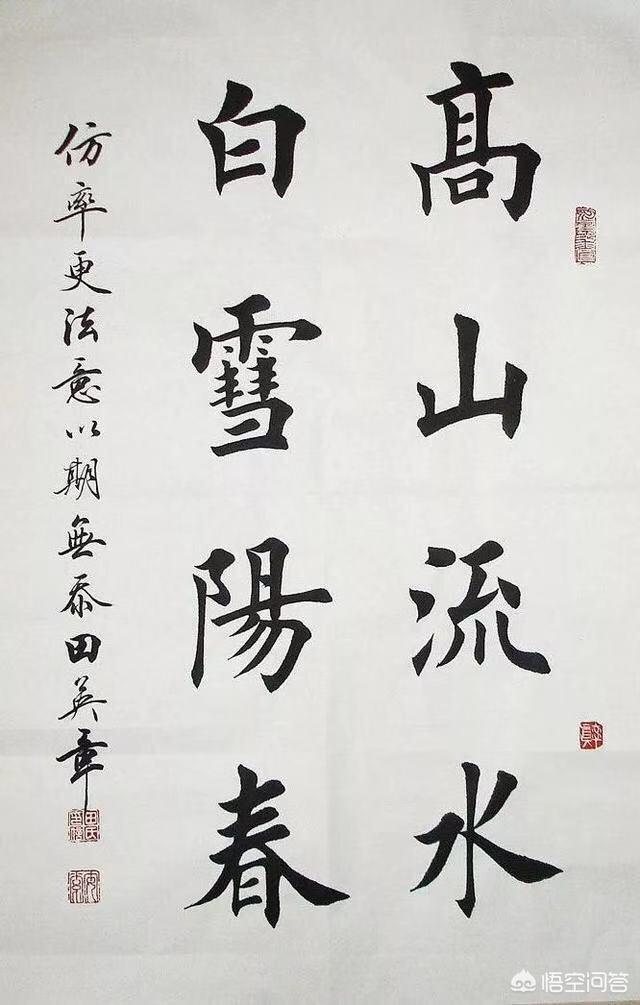 髙山流水
白䨮陽春
仿率更法意以期無忝田英章
悟空问答